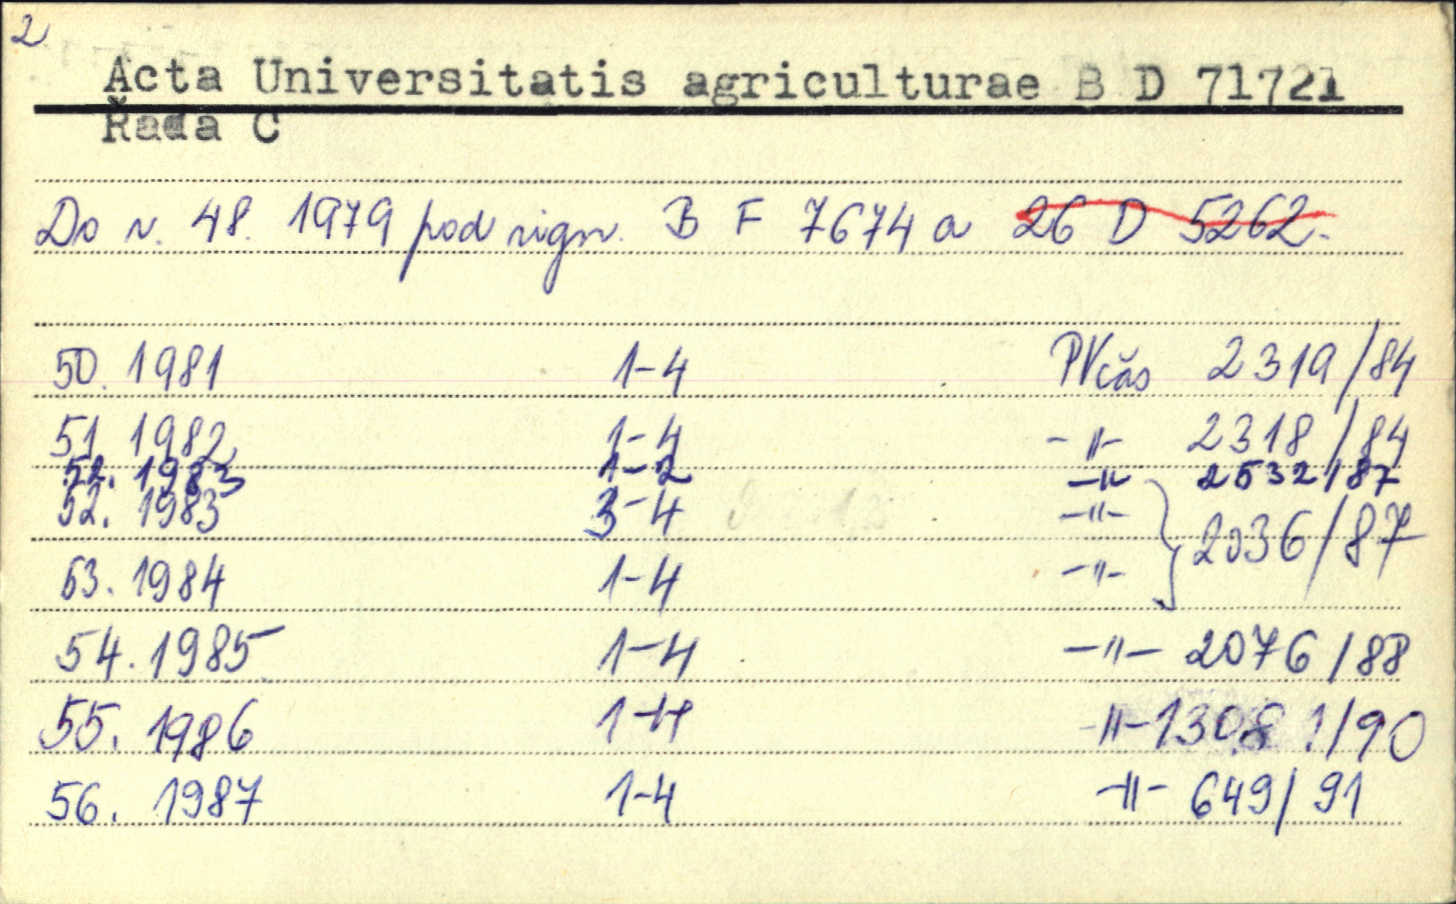 2
Acta Universitatis agriculturae B D 71721
Řada C
Do r. 48. 1979 pod sign. B F 7674 a 26 D 5262.
50. 1981 1-4 PVčas 2319/84
51. 1982 1-4 -"- 2318/84
52. 1983 1-2 -"- 2532/87
52. 1983 3-4 -"-
2036/87
53. 1984 1-4 -"-
54. 1985 1-4 -"- 2076/88
55. 1986 1-4 -"- 1308 /90
56. 1987 1-4 -"- 649/91